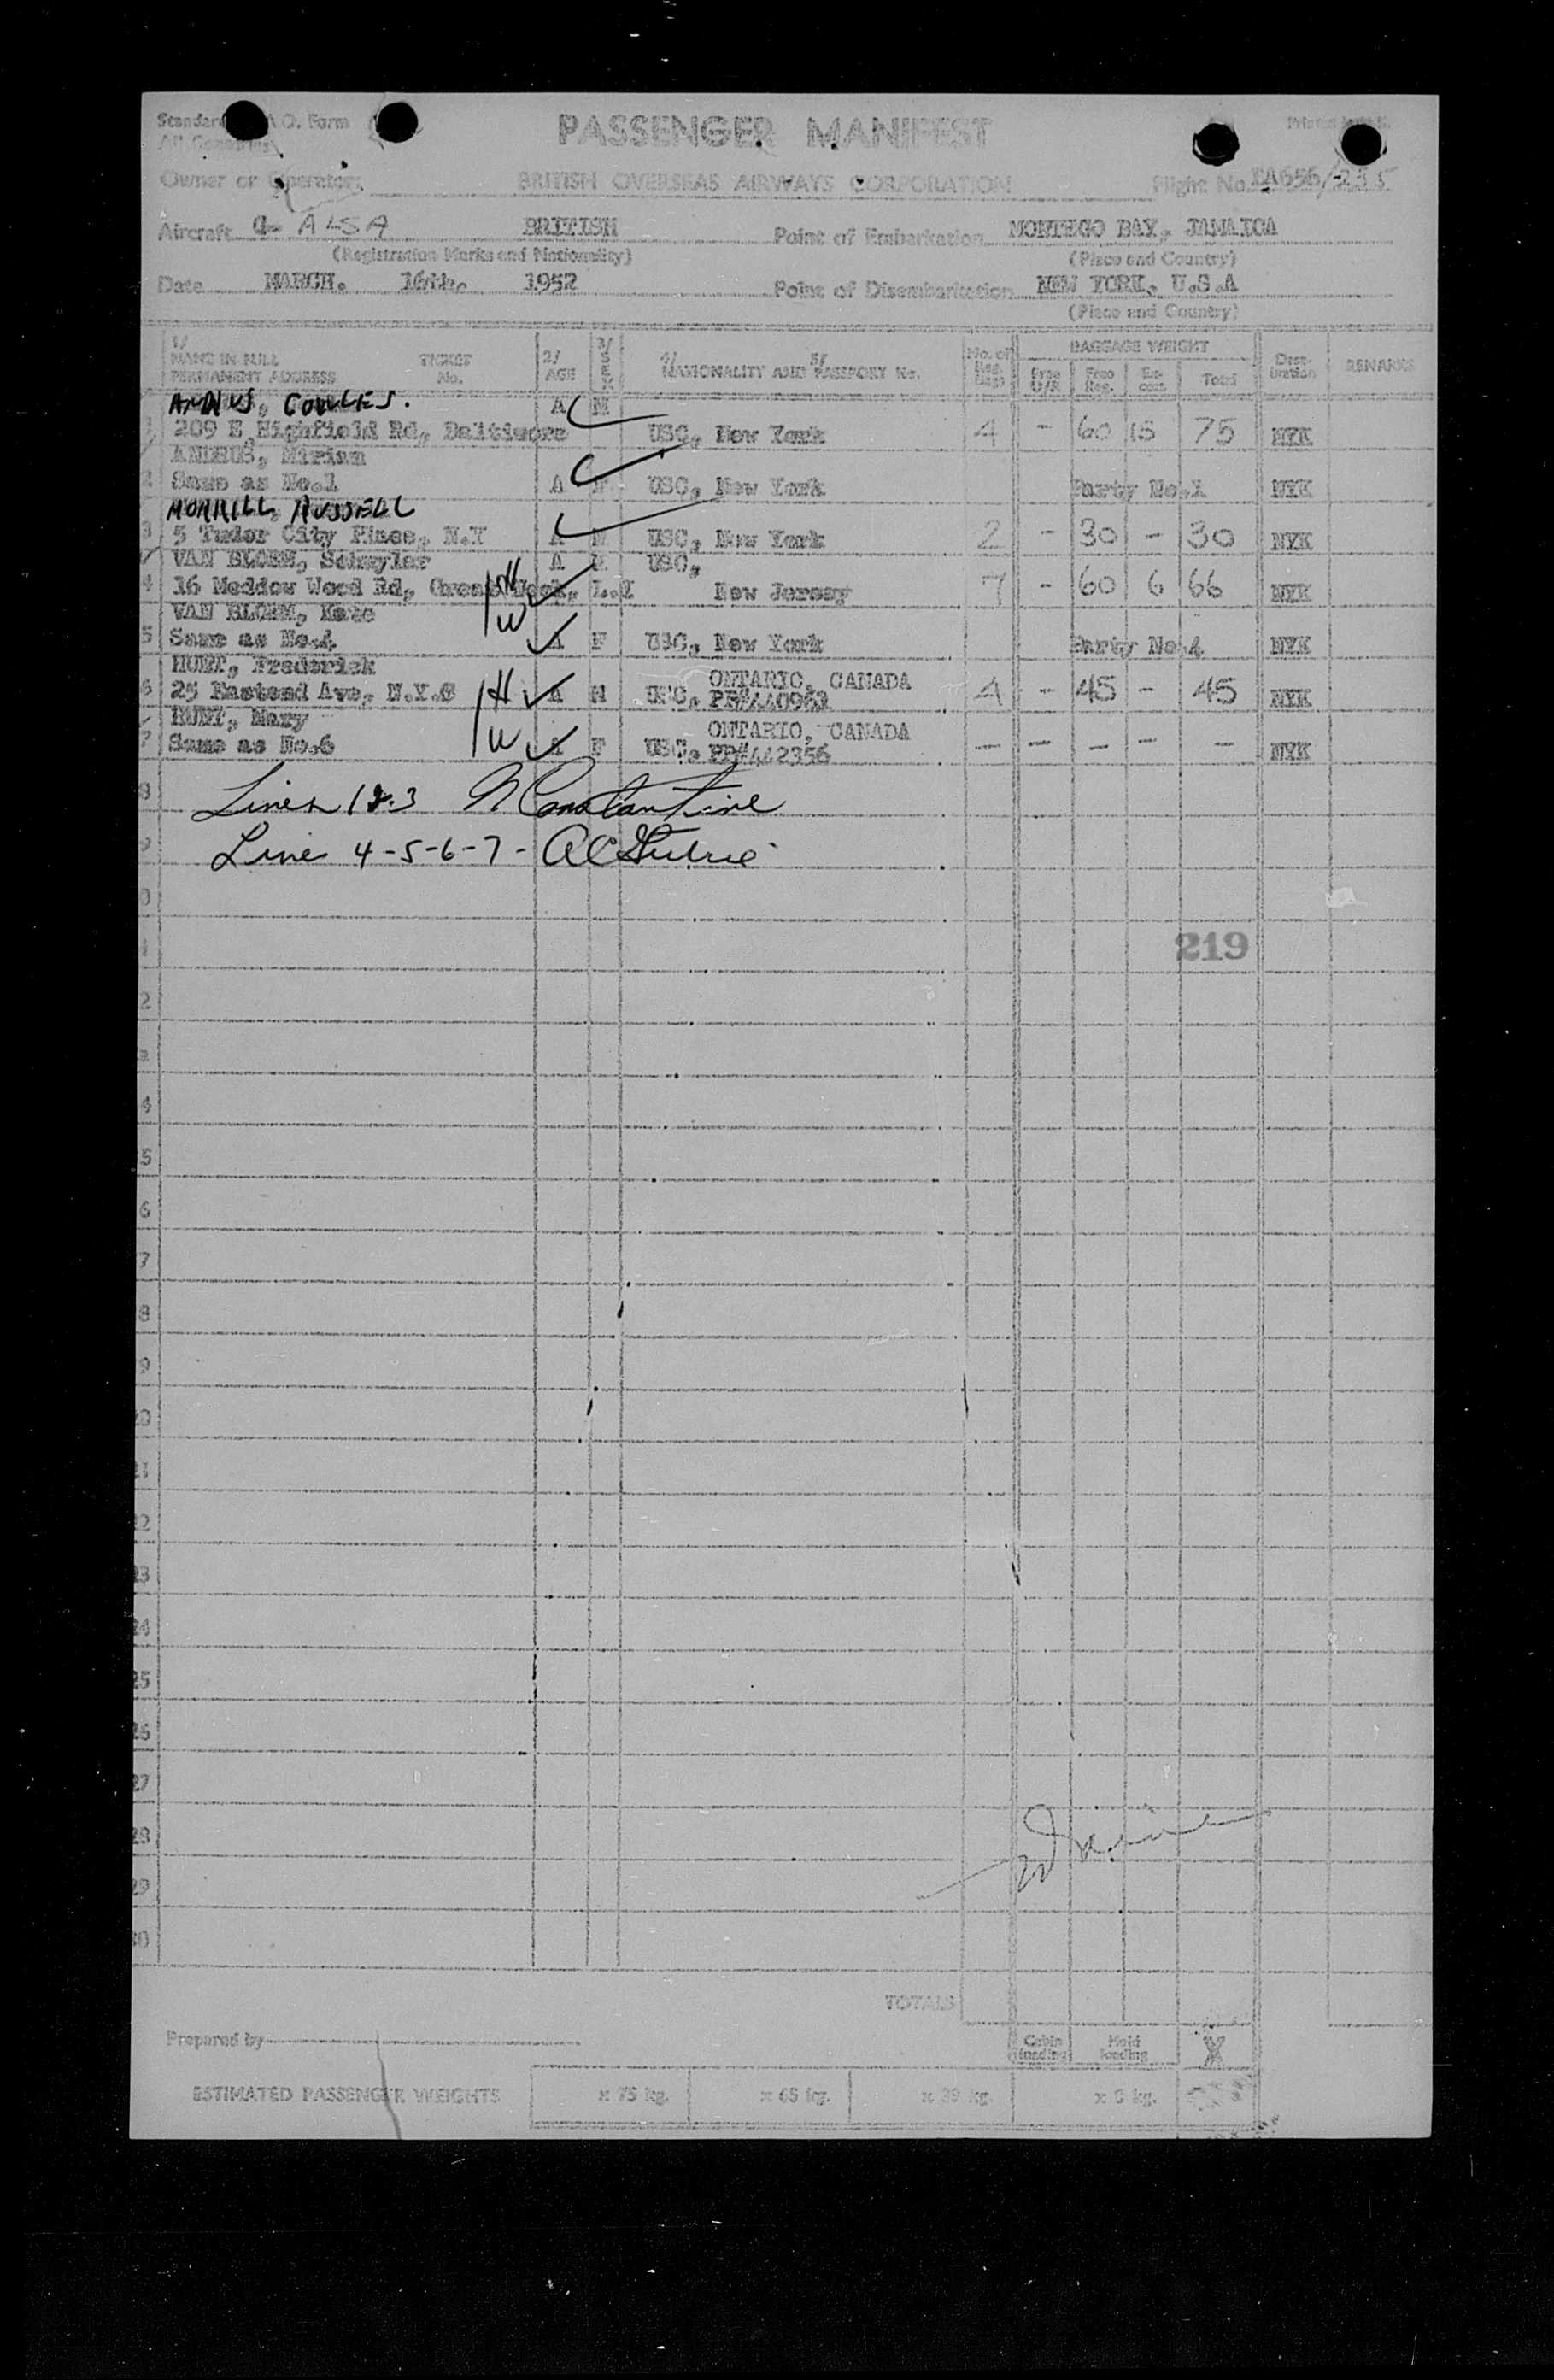 PASSENGER MANIFEST
Owner or Operator BRITISH OVERSEAS AIRWAYS CORPORATION Flight No.
Aircraft G- ALSA BRITISH Point of Embarkation MONTEGO BAY, JAMAICA
(Registration Marks and Nationality) (Place and Country)
Date MARCH. 16th. 1952 Point of Disembarkation NEW YORK, U.S.A
(Place and Country)
1/ NAME IN FULL PERMANENT ADDRESS TICKET No. 2/ AGE 3/ SEX 4/ 5/ NATIONALITY AND PASSPORT No. No. of Reg. BAGGAGE WEIGHT Free Reg. Total Destination REMARKS
COWLES.
1 209 E Highfield Rd, Baltimore A M USC, New York 4 - 60 15 75 NYK
ANDRUS, Miriam
2 Same as No.1 A F USC, New York Party No.1 NYK
MORRILL RUSSELL
3 5 Tudor City Place, N.Y A M USC, New York 2 - 30 - 30 NYK
VAN BLOEM, Schuyler A USC,
4 16 Meddow Wood Rd, Great Neck, L.I H New Jersey 7 - 60 6 66 NYK
VAN BLOEM, Kate
5 Same as No.4 W A F USC, New York Party No.4 NYK
HUNT, Frederick
ONTARIO, CANADA
6 25 Eastend Ave, N.Y.C H A M USC, 4 - 45 - 45 NYK
HUNT, Mary
ONTARIO, CANADA
7 Same as No.6 W A F USC, PP#442356 - - - - - NYK
8 Lines 1 & 3 N Constantine
9 Line 4-5-6-7-
0
1 219
2
3
4
5
6
7
8
9
20
21
22
23
24
25
26
27
28
29
30
TOTALS
Prepared by Cabin loading Hold loading X
ESTIMATED PASSENGER WEIGHTS x 75 kg. x 65 kg. x 39 kg. x 8 kg.